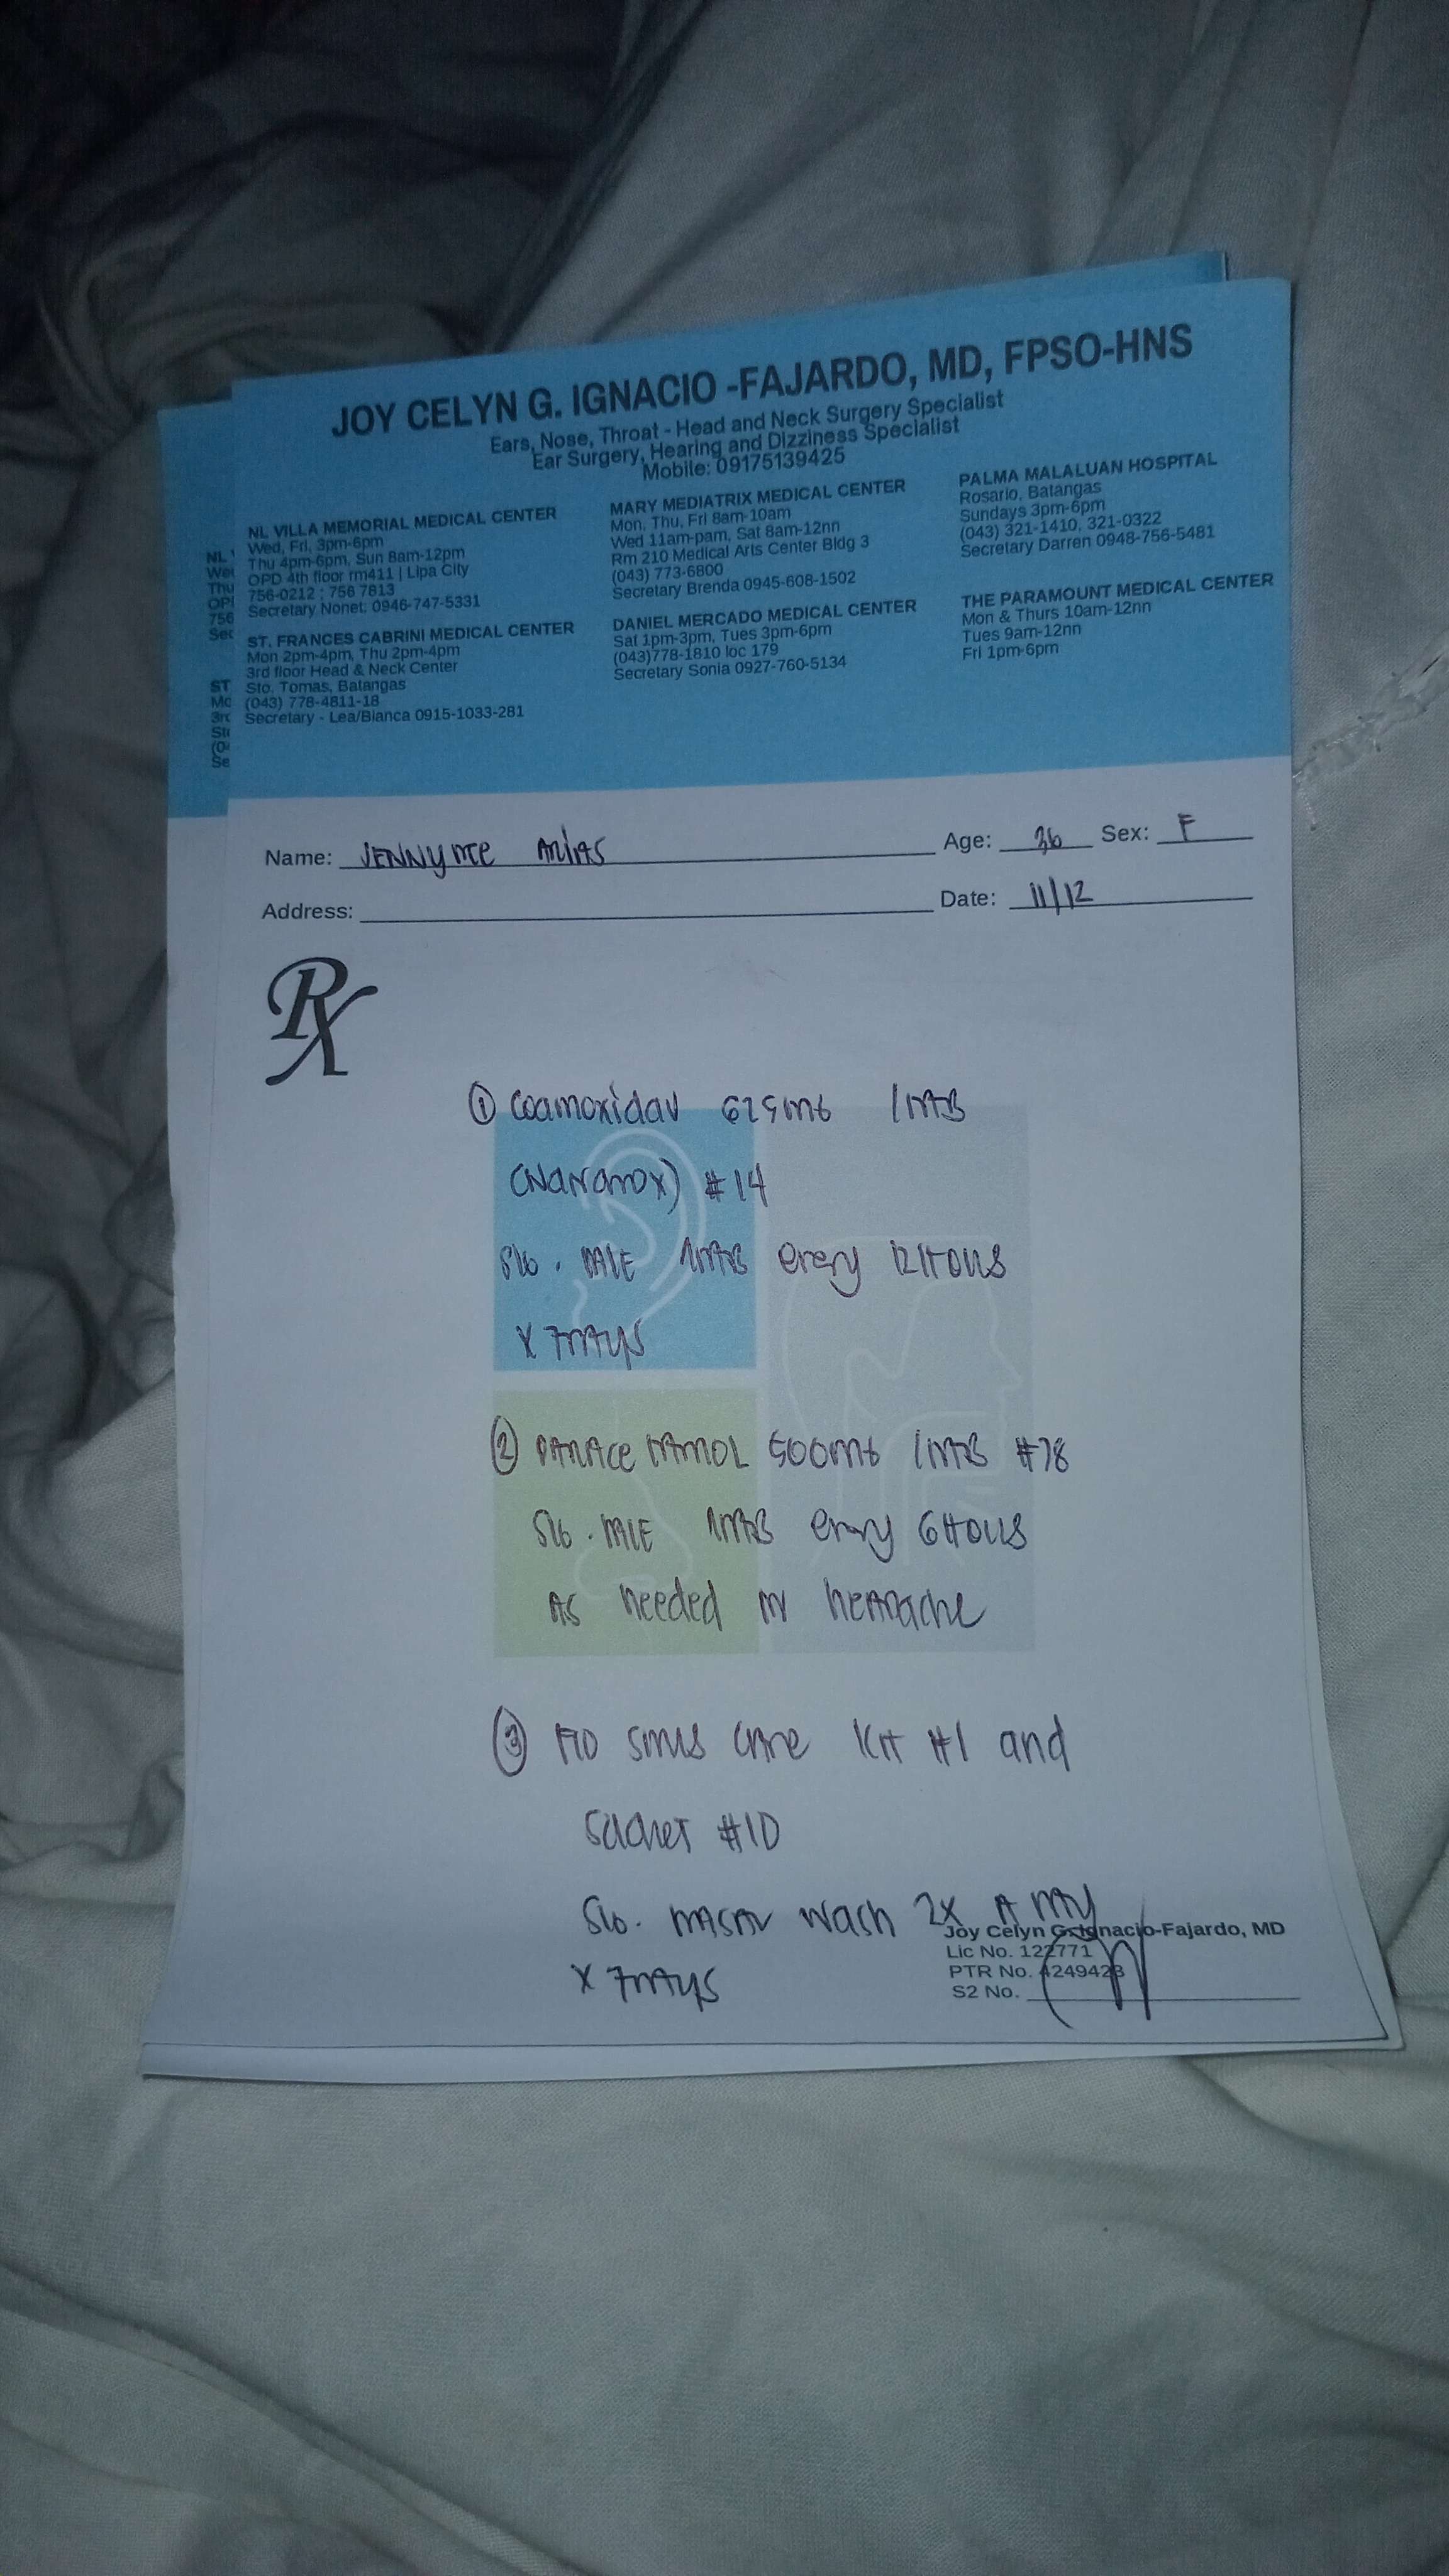 JOY CELYN G. IGNACIO -FAJARDO, MD, FPSO-HNS
Ears, Nose, Throat - Head and Neck Surgery Specialist
Ear Surgery, Hearing and Dizziness Specialist
Mobile: 09175139425
NL VILLA MEMORIAL MEDICAL CENTER
Wed, Fri, 3pm-6pm
Thu 4pm-6pm, Sun 8am-12pm
OPD 4th floor rm411 | Lipa City
756-0212 ; 756 7813
Secretary Nonet: 0946-747-5331
ST. FRANCES CABRINI MEDICAL CENTER
Mon 2pm-4pm, Thu 2pm-4pm
3rd floor Head & Neck Center
Sto. Tomas, Batangas
(043) 778-4811-18
Secretary - Lea/Bianca 0915-1033-281
MARY MEDIATRIX MEDICAL CENTER
Mon, Thu, Fri 8am-10am
Wed 11am-pam, Sat 8am-12nn
Rm 210 Medical Arts Center Bldg 3
(043) 773-6800
Secretary Brenda 0945-608-1502
DANIEL MERCADO MEDICAL CENTER
Sat 1pm-3pm, Tues 3pm-6pm
(043)778-1810 loc 179
Secretary Sonia 0927-760-5134
PALMA MALALUAN HOSPITAL
Rosario, Batangas
Sundays 3pm-6pm
(043) 321-1410, 321-0322
Secretary Darren 0948-756-5481
THE PARAMOUNT MEDICAL CENTER
Mon & Thurs 10am-12nn
Tues 9am-12nn
Fri 1pm-6pm
Name: Age: 36 Sex: F
Address: Date: 11/12
Rx
① Coamoxiclav 625mg 1 TAB
#14
Sig. TAKE 1 TAB every 12 HOURS
x 7 DAYS
② PARACETAMOL 500mg 1 TAB
Sig. TAKE 1 TAB every 6 HOURS
AS needed for HEADACHE
③ FLO SINUS CARE KIT #1 and
Sachet #10
Sig. NASAL Wash 2x A DAY
x 7 DAYS
Joy Celyn G. Ignacio-Fajardo, MD
Lic No. 122771
PTR No. 4249423
S2 No.